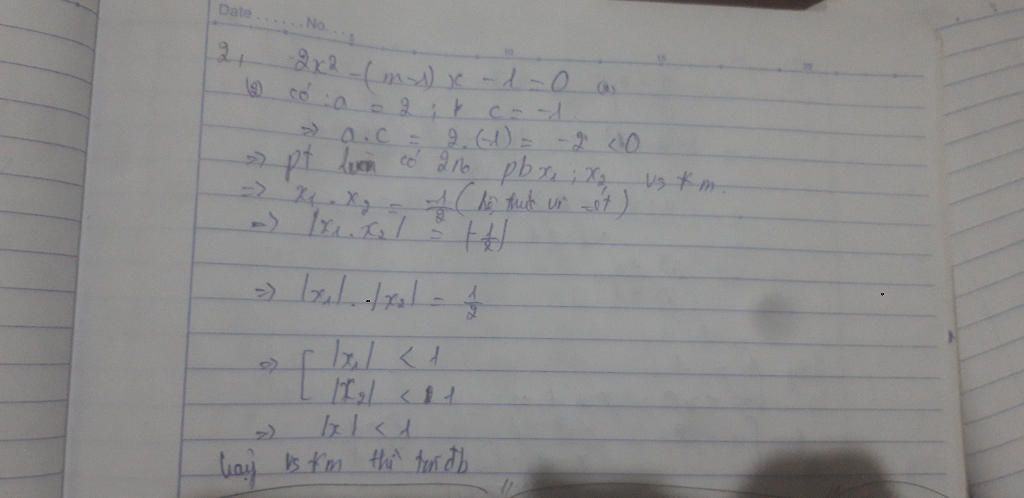 Date.......No....
2, 2x² - (m-1)x - 1 = 0 (1)
có : a = 2 ; c = -1
=> a.c = 2.(-1) = -2 < 0
=> pt luôn có 2 no pb x₁ ; x₂ vs ∀m.
=> x₁ . x₂ = -1/2 (hệ thức vi-ét)
=> |x₁ . x₂| = |-1/2|
=> |x₁| . |x₂| = 1/2
=> [ |x₁| < 1
|x₂| < 1
=> |x| < 1
Vậy vs ∀m thì đb